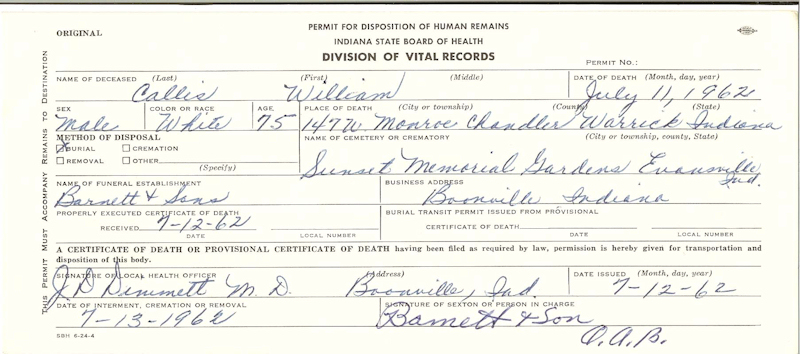 ORIGINAL
PERMIT FOR DISPOSITION OF HUMAN REMAINS
INDIANA STATE BOARD OF HEALTH
DIVISION OF VITAL RECORDS
PERMIT NO.:
THIS PERMIT MUST ACCOMPANY REMAINS TO DESTINATION
NAME OF DECEASED (Last) (First) (Middle) DATE OF DEATH (Month, day, year)
Callis William July 11, 1962
SEX COLOR OR RACE AGE PLACE OF DEATH (City or township) (County) (State)
Male White 75 147 W. Monroe Chandler Warrick Indiana
METHOD OF DISPOSAL NAME OF CEMETERY OR CREMATORY (City or township, county, State)
BURIAL CREMATION
REMOVAL OTHER
(Specify)
Sunset Memorial Gardens Evansville Ind.
NAME OF FUNERAL ESTABLISHMENT BUSINESS ADDRESS
Barnett & Sons Boonville Indiana
PROPERLY EXECUTED CERTIFICATE OF DEATH BURIAL TRANSIT PERMIT ISSUED FROM PROVISIONAL
RECEIVED 7-12-62 CERTIFICATE OF DEATH
DATE LOCAL NUMBER DATE LOCAL NUMBER
A CERTIFICATE OF DEATH OR PROVISIONAL CERTIFICATE OF DEATH having been filed as required by law, permission is hereby given for transportation and
disposition of this body.
SIGNATURE OF LOCAL HEALTH OFFICER (Address) DATE ISSUED (Month, day, year)
M. D. Boonville, Ind. 7-12-62
DATE OF INTERMENT, CREMATION OR REMOVAL SIGNATURE OF SEXTON OR PERSON IN CHARGE
7-13-1962 Barnett & Son
O.A.B.
SBH 6-24-4